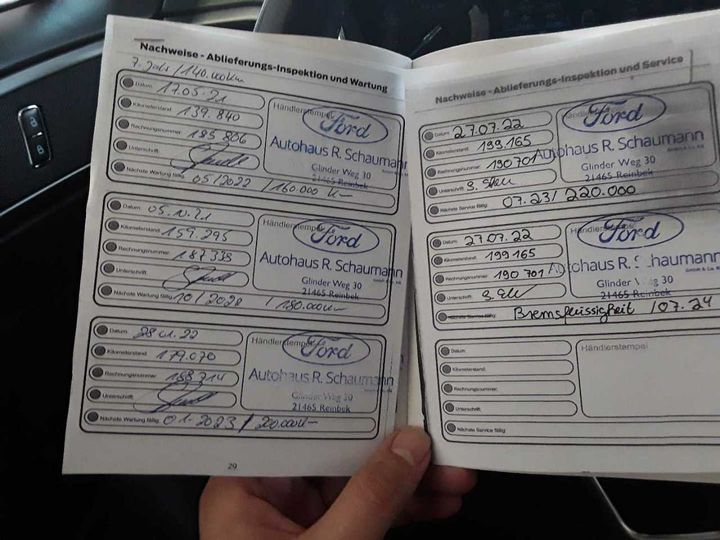 Nachweise - Ablieferungs-Inspektion und Wartung
7. Jahr / 140.000 km
Datum 17.05.21
Kilometerstand 139.840
Rechnungsnummer 185 806
Unterschrift
Nächste Wartung fällig 05/2022 / 160.000 K
Händlerstempel
Ford
Autohaus R. Schaumann
GmbH & Co. KG
Glinder Weg 30
21465 Reinbek
Datum 05.10.21
Kilometerstand 159.295
Rechnungsnummer 187 339
Unterschrift
Nächste Wartung fällig 10/2023 / 180.000
Händlerstempel
Ford
Autohaus R. Schaumann
GmbH & Co. KG
Glinder Weg 30
21465 Reinbek
Datum 28.01.22
Kilometerstand 179.070
Rechnungsnummer 188 714
Unterschrift
Nächste Wartung fällig 01.2023 / 200.000
Händlerstempel
Ford
Autohaus R. Schaumann
Glinder Weg 30
21465 Reinbek
29
Nachweise - Ablieferungs-Inspektion und Service
Datum 27.07.22
Kilometerstand 199.165
Rechnungsnummer 190 701
Unterschrift
Nächste Service fällig 07.23 / 220.000
Ford
Autohaus R. Schaumann
GmbH & Co. KG
Glinder Weg 30
21465 Reinbek
Datum 27.07.22
Kilometerstand 199 165
Rechnungsnummer 190 701
Unterschrift
Nächste Service fällig Bremsflüssigkeit / 07.24
Ford
Autohaus R. Schaumann
GmbH & Co. KG
Glinder Weg 30
21465 Reinbek
Datum
Kilometerstand
Rechnungsnummer
Unterschrift
Nächste Service fällig
Händlerstempel